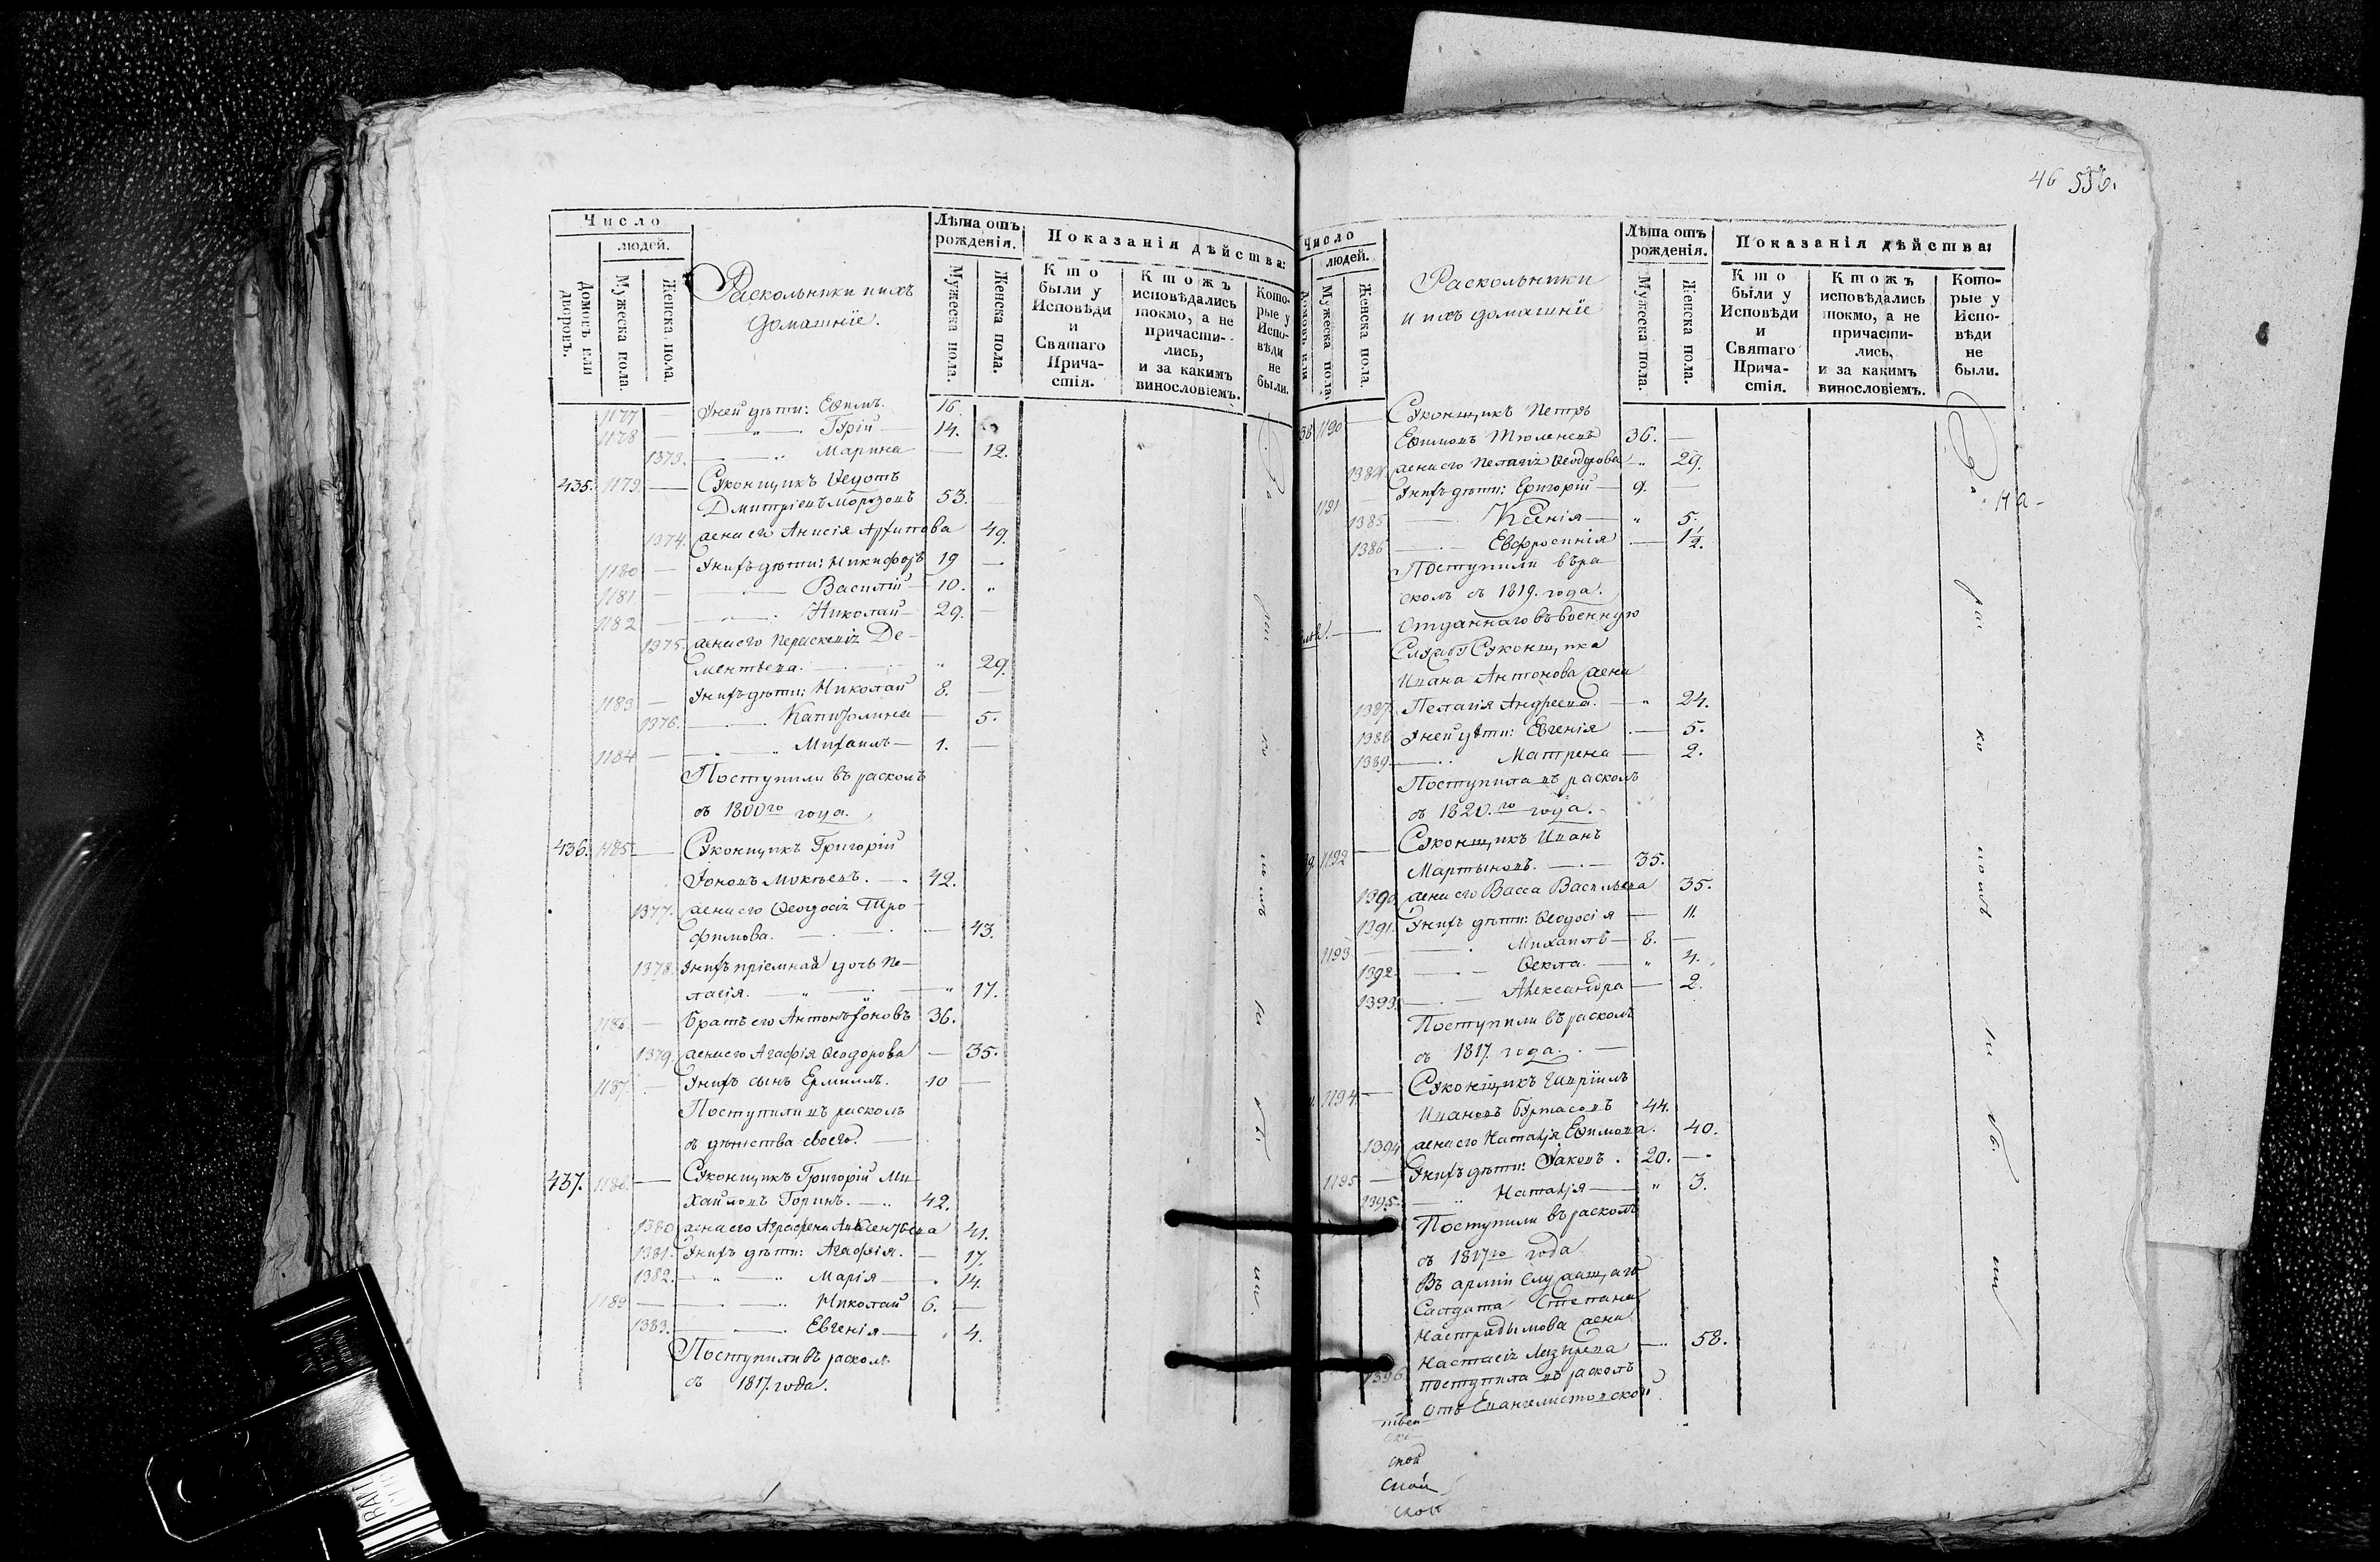 Число
людей.
Домовъ или дворовъ.
Мужеска пола.
Женска пола.
Раскольники и ихъ
домашніе.
Лѣта отъ рожденія.
Мужеска пола.
Женска пола.
Показанія дѣйства:
Кто были у Исповѣди и Святаго Причастія.
Ктожъ исповѣдались токмо, а не причастились, и за какимъ винословіемъ.
Которые у Исповѣди не были.
1177 — У ней дѣти: Евѳимъ. 16.
1178 — Гурій 14.
1373. Марина — 12.
435. 1179 — Суконщикъ Ѳедотъ
Дмитріевъ Морозовъ 53.
1374. жена его Анисія Архипова 49.
1180 — У нихъ дѣти: Никифоръ 19 —
1181 — Василій 10. "
1182 — Николай 29. —
1375. жена его Пераскевія Де-
ментьева. " 29.
1183 — У нихъ дѣти: Николай 8. —
1376. Капитолина — 5.
1184 — Михаилъ 1. —
Поступили въ расколъ
съ 1800го года.
436. 1185 — Суконщикъ Григорій
Іоновъ Мокѣевъ. 42.
1377. жена его Ѳеодосія Тро-
фимова. — 43.
1378. У нихъ пріемная дочь Пе-
лагія. " 17.
1186. — братъ его Антонъ Іоновъ 36.
1379. жена его Агафія Ѳеодорова — 35.
1187. — У нихъ сынъ Ермилъ. 10 —
Поступили въ расколъ
съ дѣтства своего.
437. 1188. — Суконщикъ Григорій Ми-
хайловъ Горинъ. 42.
1380 жена его Аграфена 41.
1381. У нихъ дѣти: Агафія. — 17.
1382. Марія 14.
1189 — Николай 6. —
1383. Евгенія 4.
Поступили въ расколъ
съ 1817. года.
46 556.
Число
людей.
Домовъ или
Мужеска пола.
Женска пола.
Раскольники
и ихъ домашніе
Лѣта отъ рожденія.
Мужеска пола.
Женска пола.
Показанія дѣйства:
Кто были у Исповѣди и Святаго Причастія.
Ктожъ исповѣдались токмо, а не причастились, и за какимъ винословіемъ.
Которые у Исповѣди не были.
38 1190 — Суконщикъ Петръ
Евѳимовъ Тюленевъ 36. —
1384. жена его Пелагія Ѳеодорова " 29.
1191 — У нихъ дѣти: Григорій 9. —
1385 Ксенія " 5.
1386 Евфросинія — 1½.
Поступили въ ра
сколъ съ 1819. года.
Отданнаго въ военную
Службу Суконщика
Ивана Антонова жена
1387. Пелагія Андреева. " 24.
1388 У ней дѣти: Евгенія 5.
1389. Матрена — 2.
Поступила въ расколъ
съ 1820.го года.
1192 — Суконщикъ Иванъ
Мартыновъ. 35.
1390 жена его Васса Васильева 35.
1391. У нихъ дѣти: Ѳеодосія — 11.
1193 — Михаилъ 8. —
1392 Ѳекла. " 4.
1393. Александра — 2.
Поступили въ расколъ
съ 1817. года.
1194. — Суконщикъ Гавріилъ
Ивановъ Буртасовъ 44.
1394 жена его Наталья Евѳимова. 40.
1195 — У нихъ дѣти: Яковъ. 20. —
1395. Наталья " 3.
Поступили въ расколъ
съ 1817го года
Въ арміи служащаго
Салдата Степана
жена
1396. Настасія Лазырева — 58.
поступила въ расколъ
отъ Евангелистовской
ской
ской
ской